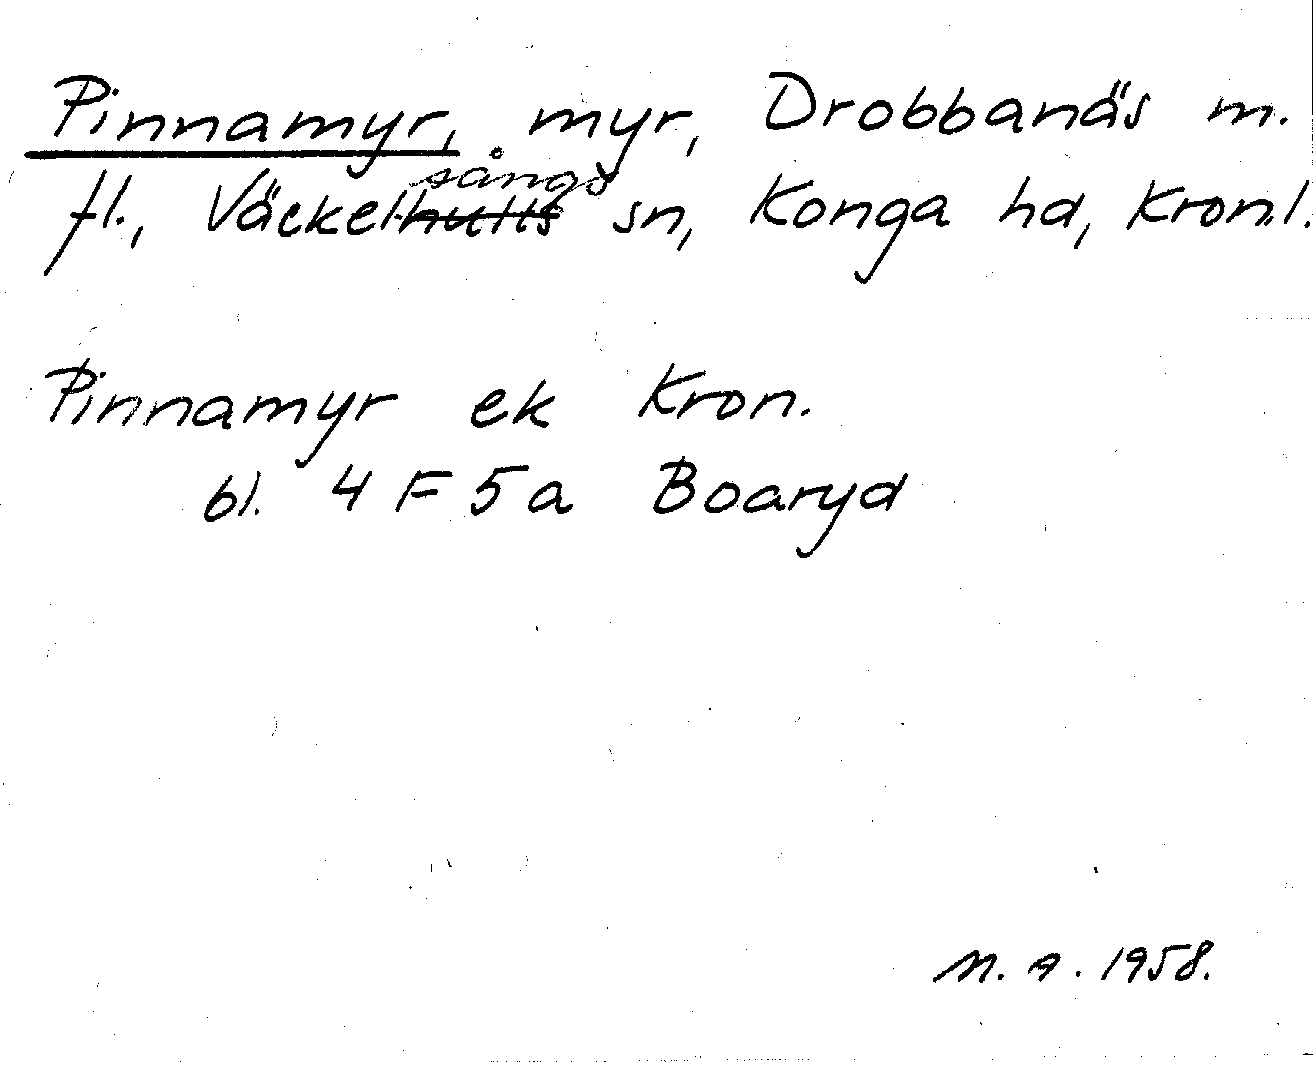 Pinnamyr, myr, Drobbanäs m.
fl., Väckelsångs sn, Konga hd, Kron.l.
Pinnamyr ek Kron.
bl. 4 F 5a Boaryd
M. A. 1958.